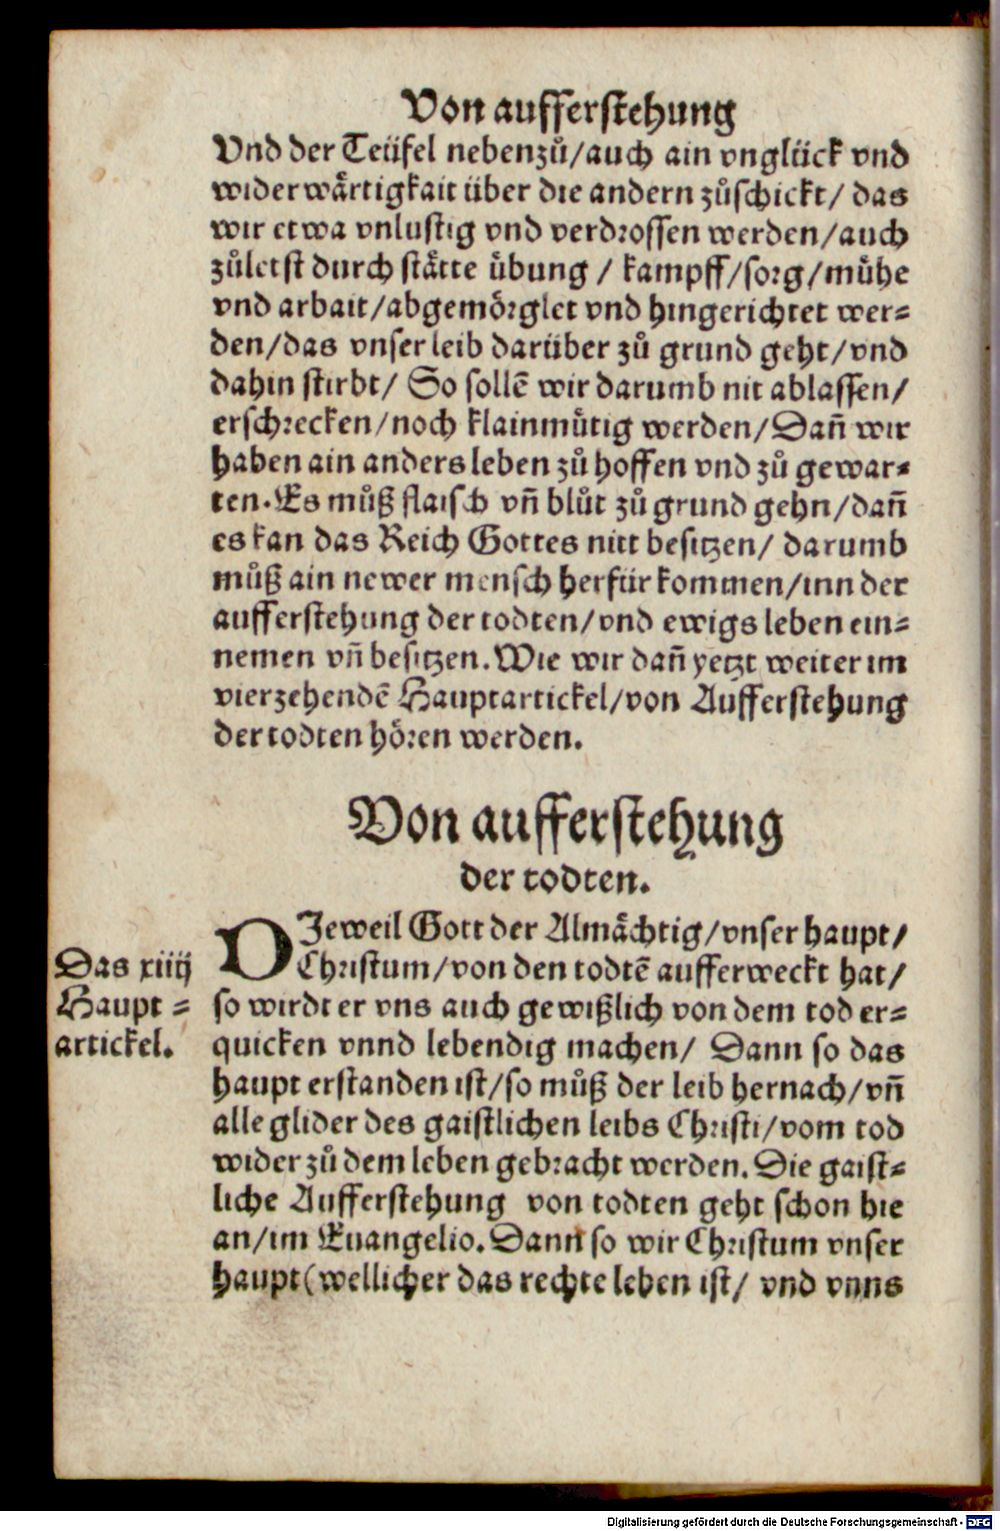 Von aufferstehung
Vnd der Teüfel nebenzů/auch ain vnglück vnd
widerwårtigkait über die andern zůschickt/ das
wir etwa vnlustig vnd verdrossen werden/auch
zůletst durch ståtte übung / kampff/sorg/mühe
vnd arbait/abgemörglet vnd hingerichtet wer=
den/das vnser leib darüber zů grund geht/vnd
dahin stirbt/ So sollē wir darumb nit ablassen/
erschrecken/noch klainmütig werden/Dañ wir
haben ain anders leben zů hoffen vnd zů gewar=
ten. Es můß flaisch vñ blůt zů grund gehn/dañ
es kan das Reich Gottes nitt besitzen/ darumb
můß ain newer mensch herfür kommen/inn der
aufferstehung der todten/vnd ewigs leben ein=
nemen vñ besitzen. Wie wir dañ yetzt weiter im
vierzehendē Hauptartickel/von Aufferstehung
der todten hören werden.
Von aufferstehung
der todten.
DJeweil Gott der Almåchtig/vnser haupt/
Christum/von den todtē aufferweckt hat/
Das xiiij
Haupt=
artickel.
so wirdt er vns auch gewißlich von dem tod er=
quicken vnnd lebendig machen/ Dann so das
haupt erstanden ist/so můß der leib hernach/vñ
alle glider des gaistlichen leibs Christi/vom tod
wider zů dem leben gebracht werden. Die gaist=
liche Aufferstehung von todten geht schon hie
an/im Euangelio. Dann so wir Christum vnser
haupt(wellicher das rechte leben ist/ vnd vnns
Digitalisierung gefördert durch die Deutsche Forschungsgemeinschaft - DFG